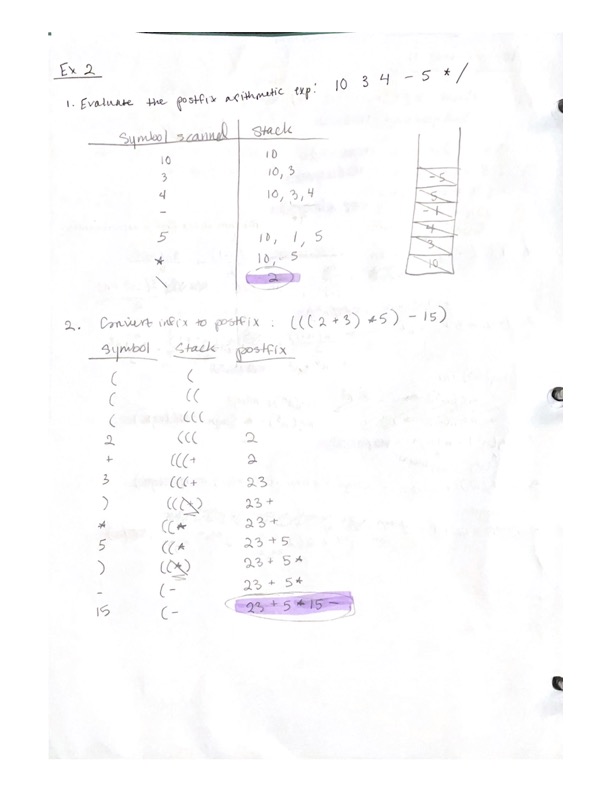 Ex 2
1. Evaluate the postfix arithmetic exp: 10 3 4 - 5 * /
Symbol scanned Stack
10 10
3 10, 3
4 10, 3, 4
-
5 10, 1, 5
* 10, -5
\ 2
-5
5
-1
4
3
10
2. Convert infix to postfix : (((2+3) *5) - 15)
Symbol Stack postfix
( (
( ((
( (((
2 ((( 2
+ (((+ 2
3 (((+ 23
) (((+) 23+
* ((* 23+
5 ((* 23+5
) ((*) 23+ 5*
- (- 23+ 5*
15 (- 23+5*15-